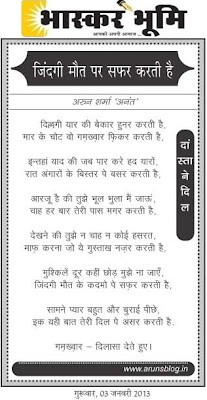 भास्कर भूमि
आपकी अपनी आवाज
जिंदगी मौत पर सफर करती है
अरुन शर्मा 'अनंत'
दिल्लगी यार की बेकार हुनर करती है,
मार के चोट वो गमख़्वार फ़िकर करती है,
इन्तहां याद की जब पार करे हद यारों,
रात अंगारों के बिस्तर पे बसर करती है.
आरजू है की तुझे भूल भुला मैं जाऊं,
चाह हर बार तेरी पास मगर करती है.
देखने की तुझे न चाह न कोई हसरत,
माफ़ करना जो ये गुस्ताख नज़र करती है.
मुश्किलें दूर कहीं छोड़ मुझे ना जाएँ,
जिंदगी मौत के कदमो पे सफ़र करती है.
सामने प्यार बहुत और बुराई पीछे,
इक यही बात तेरी दिल पे असर करती है.
गमख़्वार - दिलासा देते हुए।
दांस्ताने दिल
www.arunsblog.in
गुरूवार, 03 जनवरी 2013